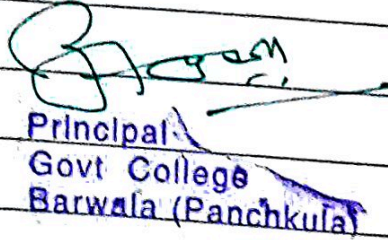 Principal
Govt College
Barwala (Panchkula)